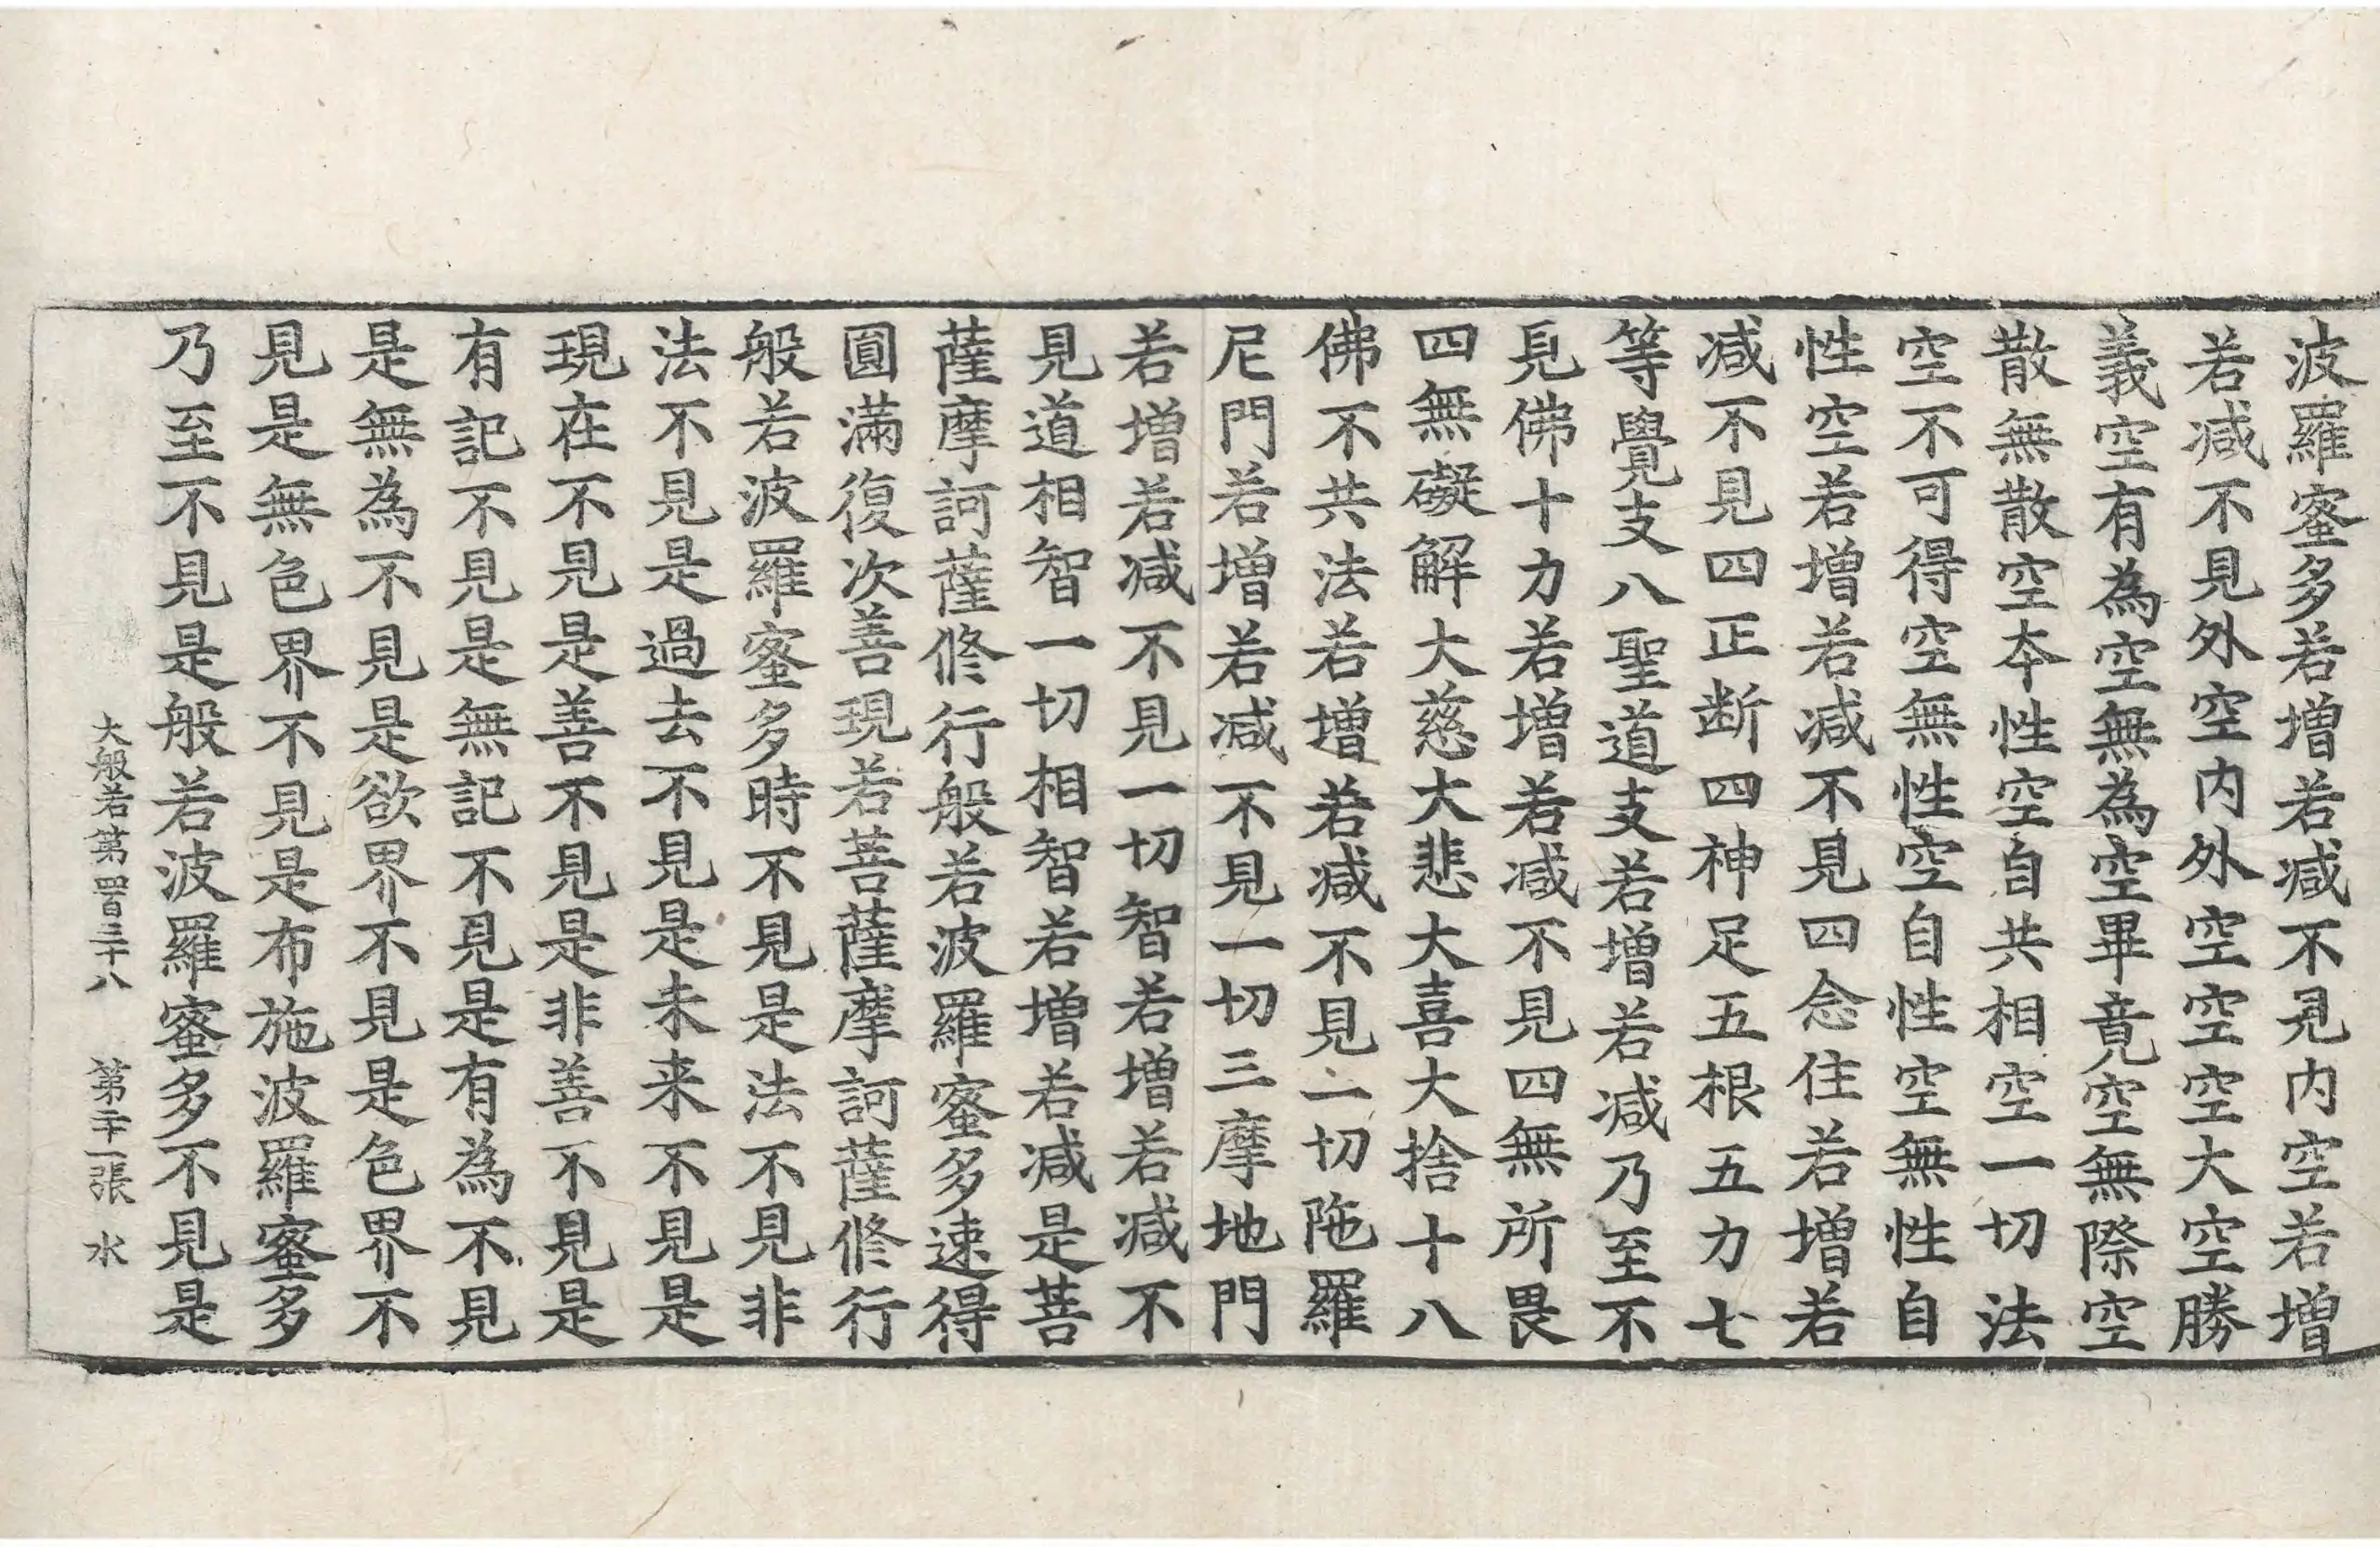 波羅蜜多若增若减不見内空若增
若减不見外空内外空空空大空勝
義空有為空無為空畢竟空無際空
散無散空本性空自共相空一切法
空不可得空無性空自性空無性自
性空若增若减不見四念住若增若
减不見四正断四神足五根五力七
等覺支八聖道支若增若减乃至不
見佛十力若增若减不見四無所畏
四無礙解大慈大悲大喜大捨十八
佛不共法若增若减不見一切陁羅
尼門若增若减不見一切三摩地門
若增若减不見一切智若增若减不
見道相智一切相智若增若减是菩
薩摩訶薩修行般若波羅蜜多速得
圓滿復次善現若菩薩摩訶薩修行
般若波羅蜜多時不見是法不見非
法不見是過去不見是未来不見是
現在不見是善不見是非善不見是
有記不見是無記不見是有為不見
是無為不見是欲界不見是色界不
見是無色界不見是布施波羅蜜多
乃至不見是般若波羅蜜多不見是
大般若第四百三十八 第二十一張 水